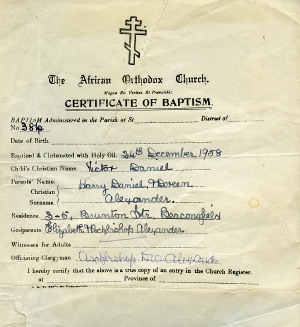 The African Orthodox Church.
Magna Est Veritas, Et Praevalebit.
CERTIFICATE OF BAPTISM.
BAPTISM Administered in the Parish of St District of
No
Date of Birth
Baptized & Chrismated with Holy Oil. 24th December 1958
Child's Christian Name Victor Daniel
Parents' Name:
Christian Harry Daniel & Doreen
Surname. Alexander.
Residence. 3-5, Brunton Str, Beaconsfield
Godparents Elizabeth & Archbishop Alexander
Witnesses for Adults
Officiating Clergyman Archbishop D.W. Alexander
I hereby certify that the above is a true copy of an entry in the Church Register.
at Province of